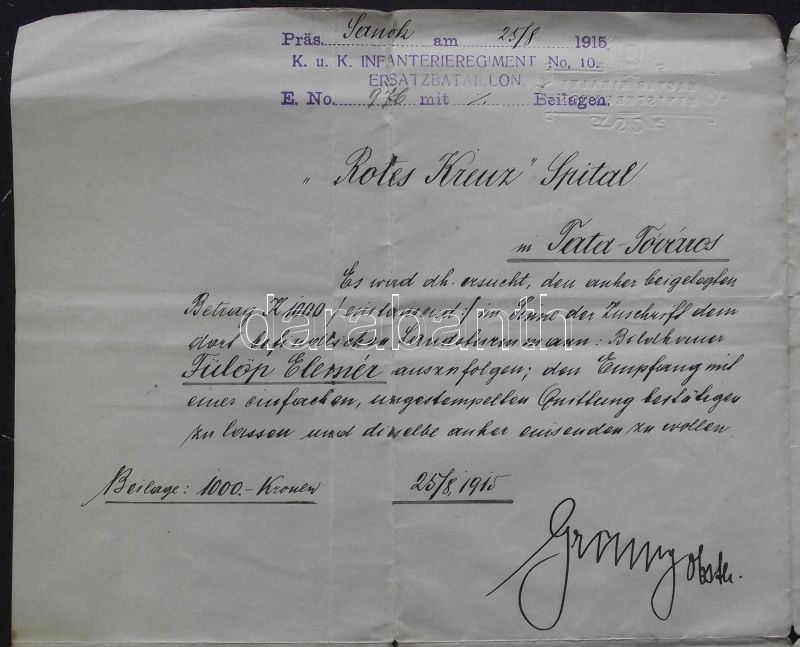 Präs. Sanok am 25/8 1915
K. u. K. INFANTERIEREGIMENT No. 10.
ERSATZBATAILLON.
E. No. 976 mit /. Beilagen.
"Rotes Kreuz" Spital
in Tata-Tóváros
Es wird dh. ersucht, den anher beigelegten
Betrag K 1000 /eintausend/ im Sinne der Zuschrift dem
dort befindlichen Landsturmmann: Bildhauer
Fülöp Elemér auszufolgen; den Empfang mit
einer einfachen, ungestempelten Quittung bestätigen
zu lassen und dieselbe anher einsenden zu wollen.
Beilage: 1000.- Kronen 25/8, 1915
Obstl.
darabanth